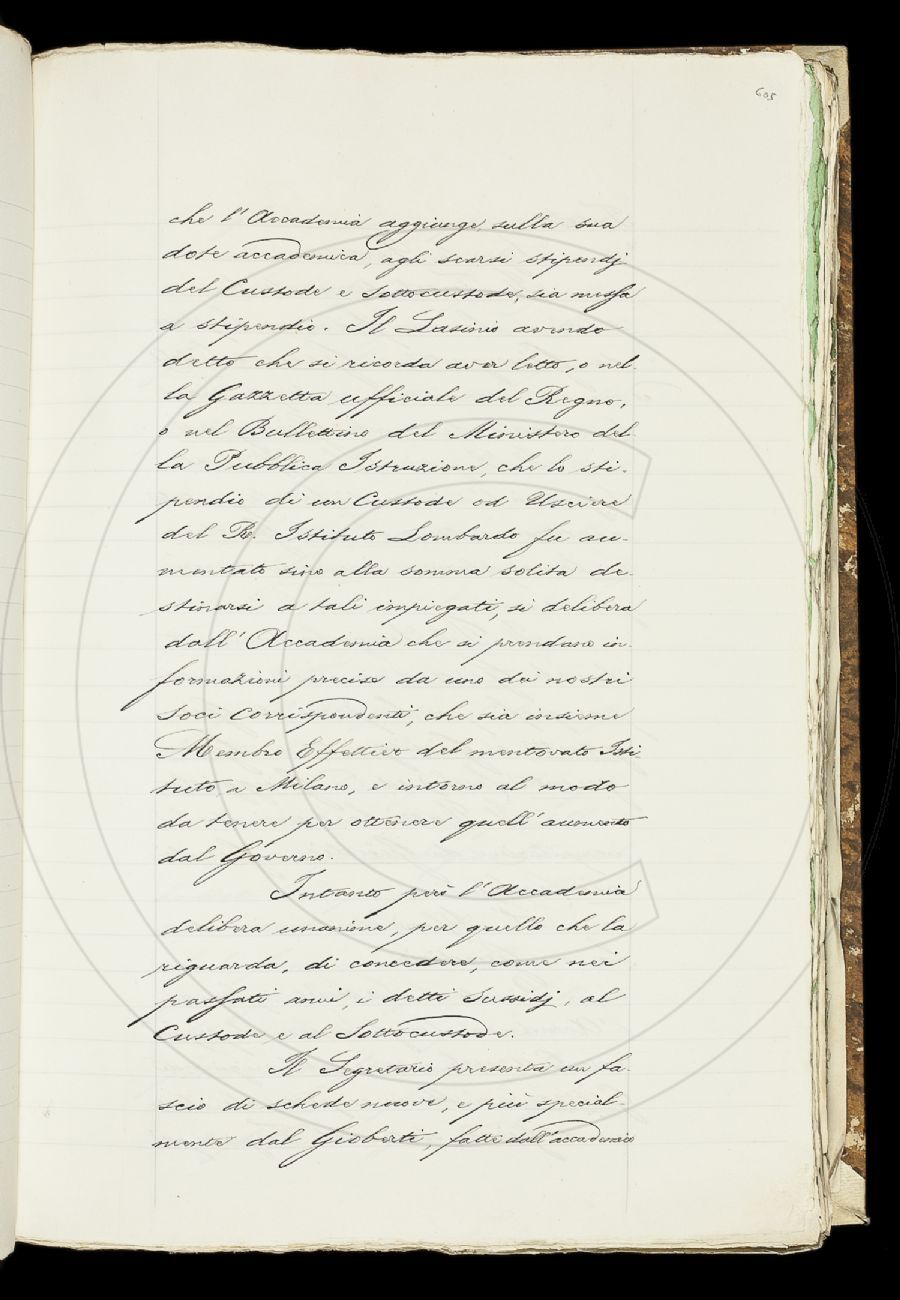 605
che l'Accademia aggiunge, sulla sua
dote accademica, agli scarsi stipendj
del Custode e Sottocustode, sia messa
a stipendio. Il Lasinio avendo
detto che si ricorda aver letto, o nel-
la Gazzetta ufficiale del Regno,
o nel Bullettino del Ministero del-
la Pubblica Istruzione, che lo sti-
pendio di un Custode od Usciere
del R. Istituto Lombardo fu au-
mentato sino alla somma solita de-
stinarsi a tali impiegati, si delibera
dall'Accademia che si prendano in-
formazioni precise da uno dei nostri
Soci corrispondenti, che sia insieme
Membro Effettivo del mentovato Isti-
tuto a Milano, e intorno al modo
da tenere per ottenere quell'aumento
dal Governo.
Intanto però l'Accademia
delibera unanime, per quello che la
riguarda, di concedere, come nei
passati anni, i detti Sussidj, al
Custode e al Sottocustode.
Il Segretario presenta un fa-
scio di schede nuove, e più special-
mente dal Gioberti, fatte dall'accademico